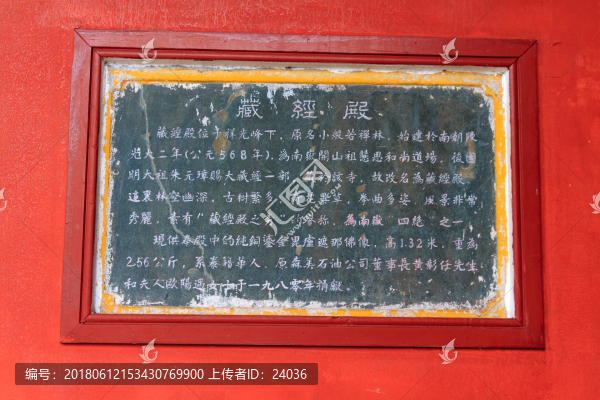 藏經殿
藏經殿位于祥光峰下，原名小般若禪林，始建於南朝陳
光大二年(公元568年)，為南嶽開山祖慧思和尚道場，後因
明太祖朱元璋賜大藏經一部，該寺，故改名為藏經殿。
這裏林空幽深，古树繁多，多姿，風景非常
秀麗，素有"藏經殿之秀"，為南嶽"四絕"之一。
現供奉殿中的純銅塗金毘盧遮那佛像，高1.32米，重為
256公斤，系泰籍華人、原森美石油公司董事長黄彰任先生
和夫人歐陽女士于一九八零年捐獻。
编号：20180612153430769900 上传者ID：24036